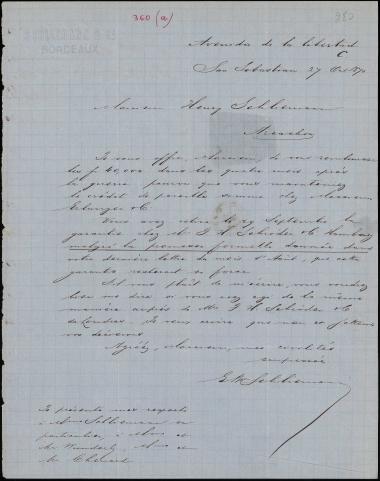 360 (a)
BORDEAUX
Avenida de la libertad
San Sebastian 27 Oct 70
Monsieur Henry Schliemann
Arcachon
Je vous offre, Monsieur, de vous rembourser
les f 40,000 dans les quatre mois après
la guerre pourvu que vous mainteniez
le crédit de pareille somme chez Messieurs
& Co
Vous avez retiré le 29 Septembre la
garantie chez M J H Schröder & Co Hambourg
malgré la promesse formelle donnée dans
votre dernière lettre du mois d'Août, que cette
garantie resterait en force.
S'il vous plait de m'écrire, vous voudrez
bien me dire si vous avez agi de la même
manière auprès de M J H Schröder & Co
de Londres. Je vous écrire que
vos décisions
Agréez, Monsieur, mes civilités
empressées
Schliemann
Je présente mes respects
à Mme Schliemann en
particulier, à Mme et
Mr Mme et
Mr